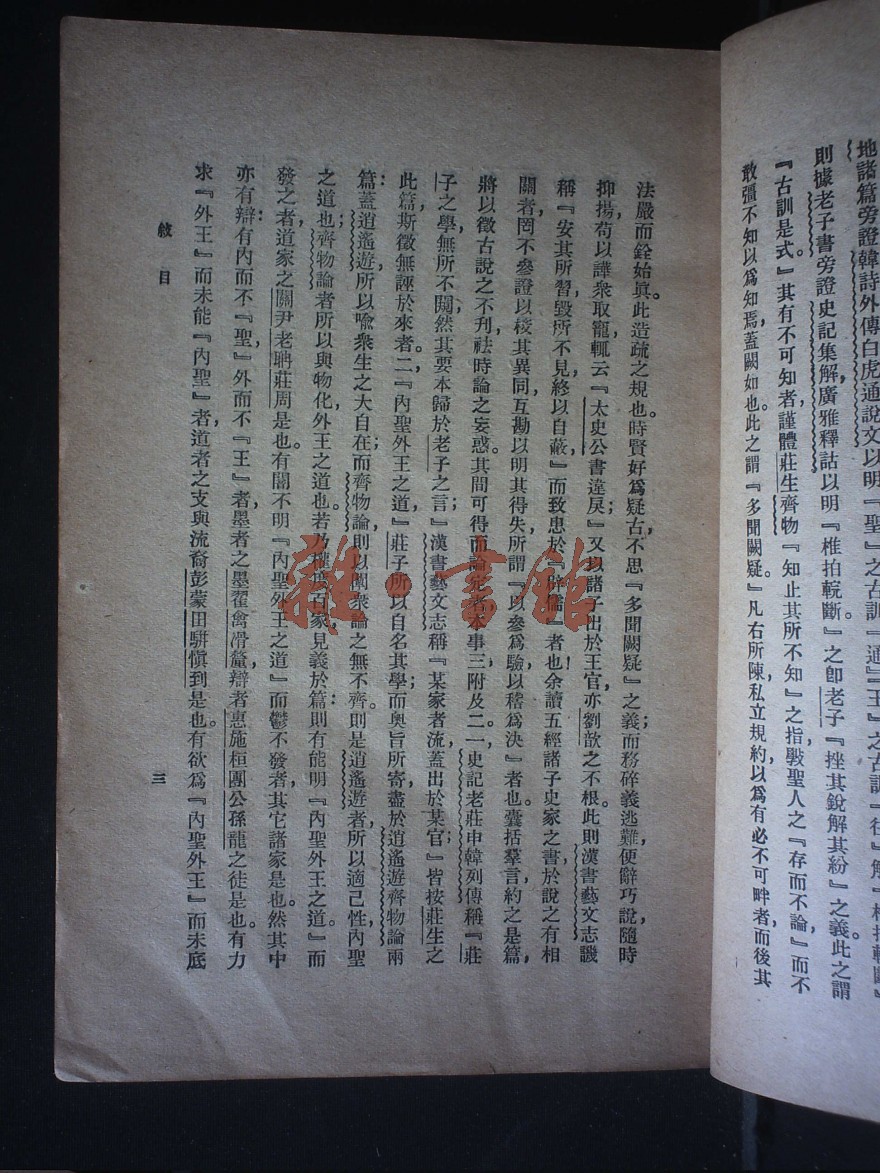 地諸篇旁證韓詩外傳白虎通說文以明『聖』之古訓『通』『王』之古訓『往』解『椎拍輐斷』
則據老子書旁證史記集解廣雅釋詁以明『椎拍輐斷』之卽老子『挫其銳解其紛』之義此之謂
『古訓是式』其有不可知者謹體莊生齊物『知止其所不知』之指斅聖人之『存而不論』而不
敢彊不知以爲知焉蓋闕如也。此之謂『多聞闕疑。』凡右所陳私立規約以爲有必不可畔者而後其
法嚴而銓始眞。此造疏之規也。時賢好爲疑古不思『多聞闕疑』之義；而務碎義逃難便辭巧說，隨時
抑揚，苟以譁衆取寵，輒云『太史公書違戾；』又以諸子出於王官，亦劉歆之不根。此則漢書藝文志譏
稱『安其所習，毀所不見，終以自蔽』而致患於『辟儒』者也！余讀五經諸子史家之書，於說之有相
關者，罔不參證以校其異同，互勘以明其得失，所謂『以參爲驗，以稽爲決』者也。囊括羣言，約之是篇，
將以徵古說之不刋，祛時論之妄惑。其間可得而論定者，本事三，附及二。一，史記老莊申韓列傳稱『莊
子之學，無所不闚，然其要本歸於老子之言；』漢書藝文志稱『某家者流，蓋出於某官；』皆按莊生之
此篇，斯徵無誣於來者。二，『內聖外王之道，』莊子所以自名其學；而奧旨所寄，盡於逍遙遊齊物論兩
篇：蓋逍遙遊所以喩衆生之大自在；而齊物論則以闡衆論之無不齊。則是逍遙遊者，所以適己性，內聖
之道也；齊物論者，所以與物化，外王之道也。若乃權度百家，見義於篇：則有能明『內聖外王之道』而
發之者，道家之關尹老聃莊周是也。有闇不明『內聖外王之道』而鬱不發者，其它諸家是也。然其中
亦有辯：有內而不『聖，』外而不『王』者，墨者之墨翟禽滑釐，辯者惠施桓團公孫龍之徒是也。有力
求『外王』而未能『內聖』者，道者之支與流裔彭蒙田駢愼到是也。有欲爲『內聖外王』而未底
敍目
三
雜·書館